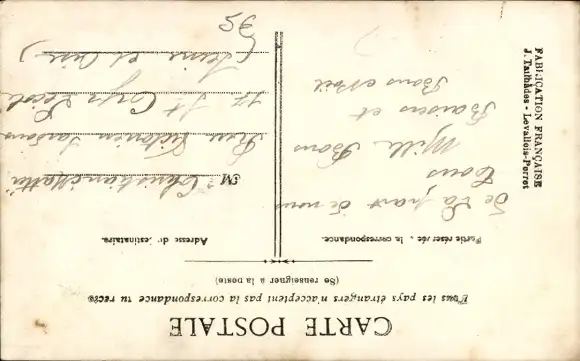 CARTE POSTALE
Tous les pays étrangers n'acceptent pas la correspondance au recto
(Se renseigner à la poste)
Partie réservée à la correspondance.
Adresse du destinataire.
De la part de nous
tous
Mille Bons
Baisers et
Bons Noël
M Christiane Martin
Rue Victorien Sardou
St Cyr l'Ecole
(Seine et Oise)
35
FABRICATION FRANÇAISE
J. Tailhades - Levallois-Perret